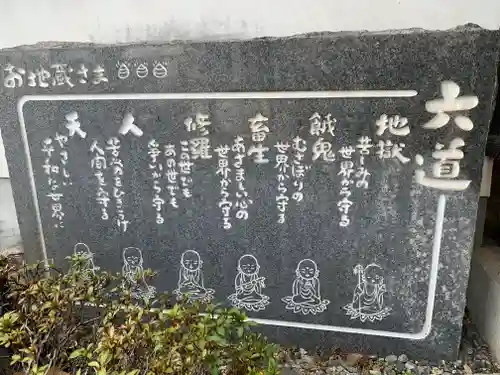 お地蔵さま
六道
地獄
苦しみの
世界から守る
餓鬼
むさぼりの
世界から守る
畜生
あさましい心の
世界から守る
修羅
この世でも
あの世でも
争いから守る
人
苦労のもしきうけ
人間を守る
天
やさしい
平和な世界に